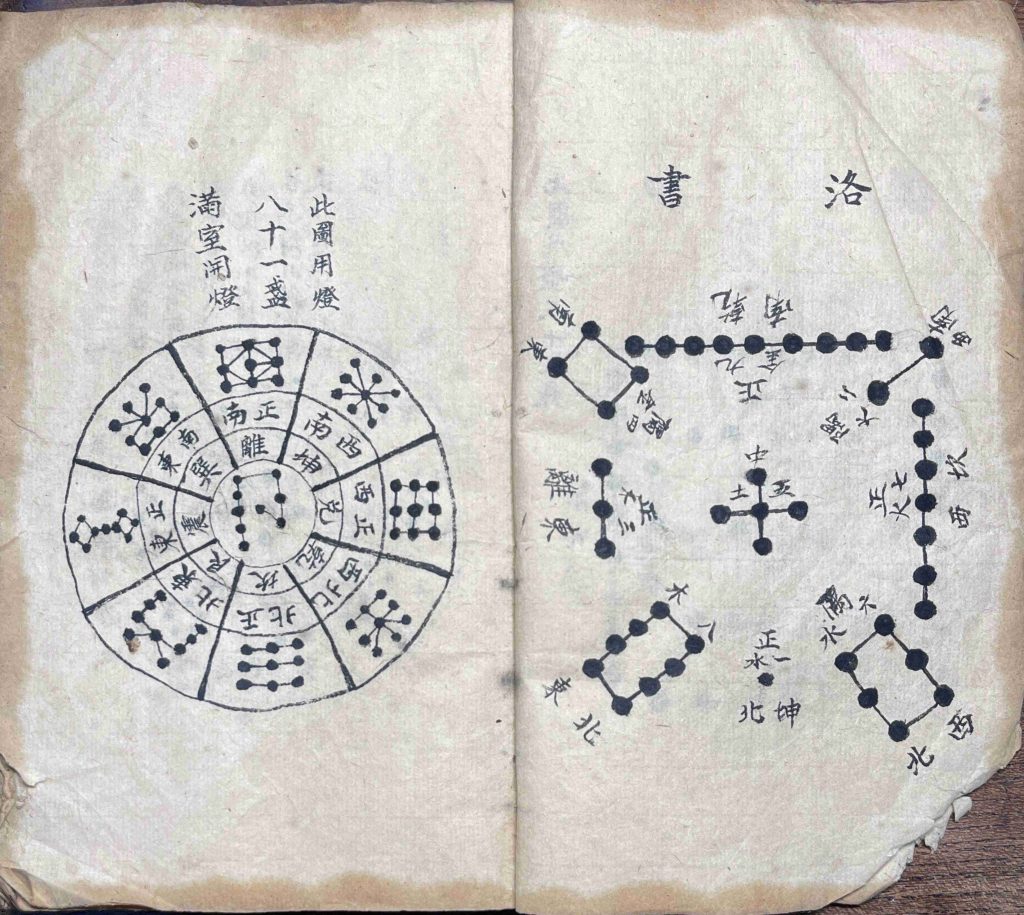 洛書
南乾
正九金
西南
東南
中
土五
離東
正三木
坎西
正七火
正一水
坤北
東北
西北
六水
八木
此圖用燈
八十一盛
滿室開燈
正南
西南
正西
西北
正北
東北
正東
東南
離
坤
兌
乾
坎
艮
震
巽